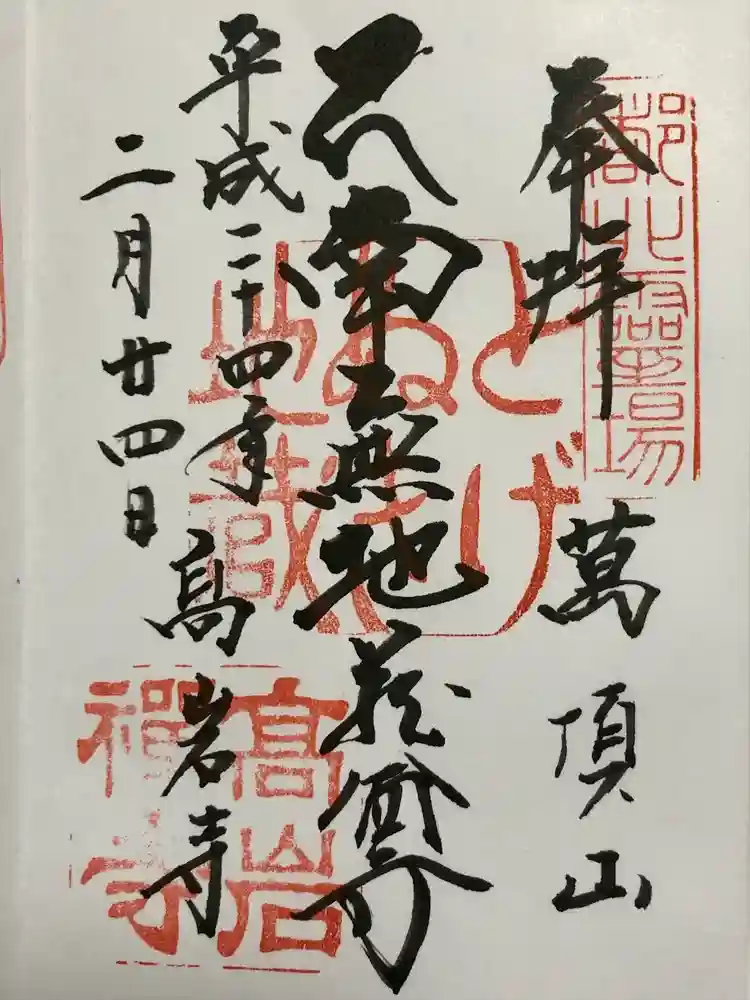 奉拝
都北靈場
萬頂山
南無地蔵尊
とげ
ぬき
地蔵
平成二十四年
二月廿四日
高岩寺
高岩
禪寺